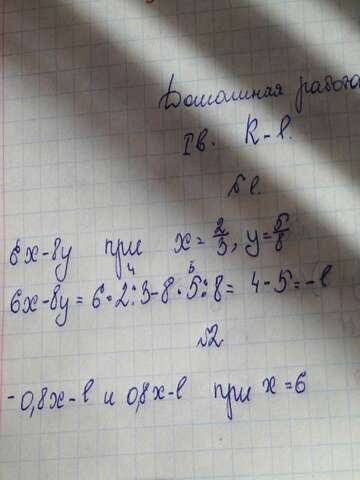 Домашняя работа
Iв. К-1.
№1.
6x-8y при x=2/3, y=5/8
4 5
6x-8y=6·2:3-8·5:8= 4-5=-1
№2
-0,8x-1 и 0,8x-1 при x=6